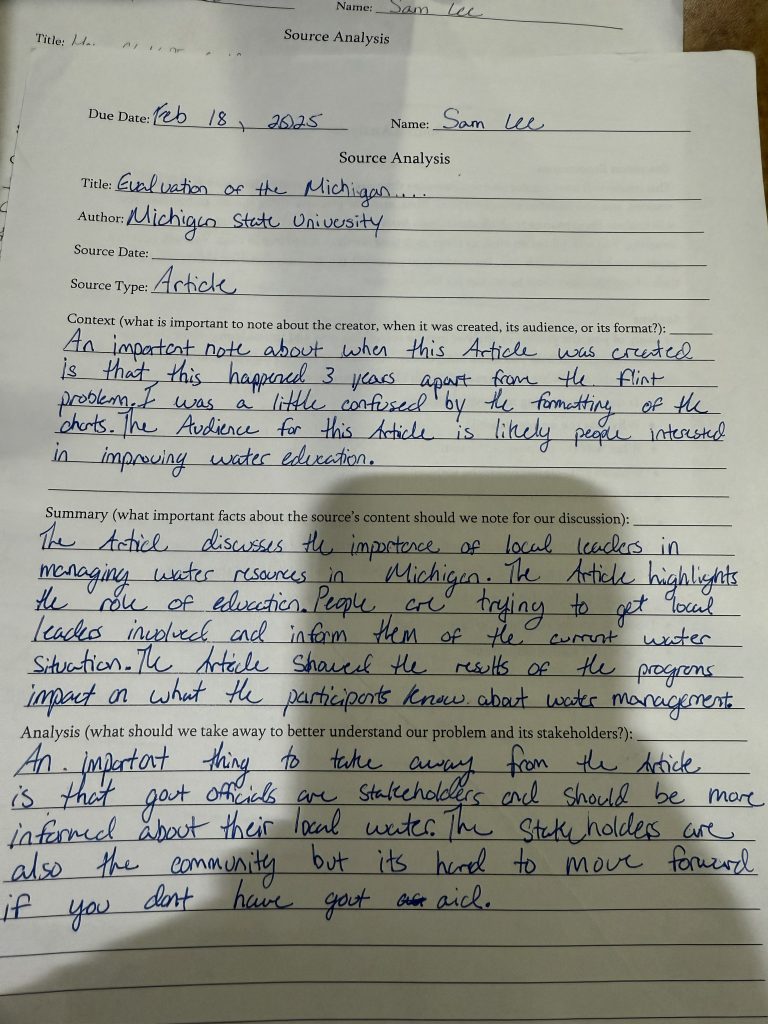 Name: Sam Lee
Source Analysis
Title:
Due Date: Feb 18, 2025 Name: Sam Lee
Source Analysis
Title: Evaluation of the Michigan....
Author: Michigan State University
Source Date:
Source Type: Article
Context (what is important to note about the creator, when it was created, its audience, or its format?):
An important note about when this Article was created
is that this happened 3 years apart from the flint
problem. I was a little confused by the formatting of the
charts. The Audience for this Article is likely people interested
in improving water education.
Summary (what important facts about the source's content should we note for our discussion):
The Article discusses the importance of local leaders in
managing water resources in Michigan. The Article highlights
the role of education. People are trying to get local
leaders involved and inform them of the current water
situation. The Article shared the results of the programs
impact on what the participants know about water management.
Analysis (what should we take away to better understand our problem and its stakeholders?):
An important thing to take away from the Article
is that govt officials are stakeholders and should be more
informed about their local water. The Stakeholders are
also the community but its hard to move forward
if you dont have govt aid.